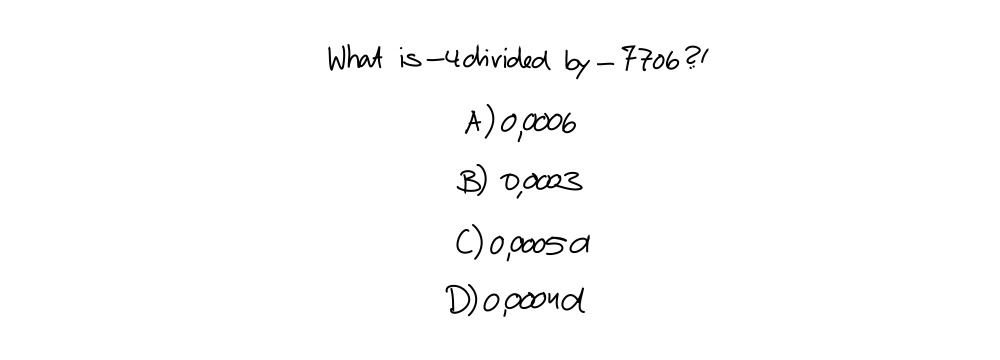 What is -4 divided by - 7706?'
A) 0,0006
B) 0,0003
C) 0,0005 d
D) 0,0004d